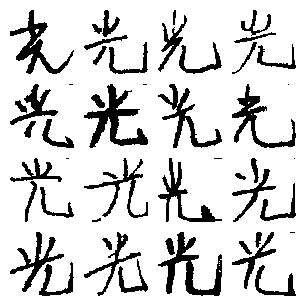 光光光光
光光光光
光光光光
光光光光